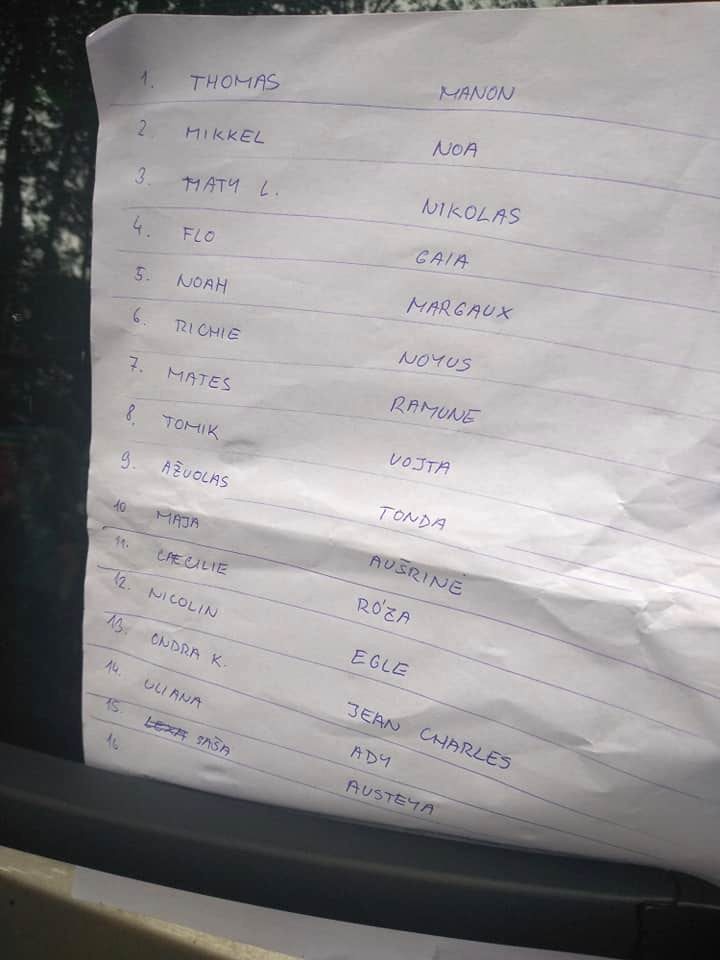 1. THOMAS MANON
2. MIKKEL NOA
3. MATY L. NIKOLAS
4. FLO GAIA
5. NOAH MARGAUX
6. RICHIE NOYUS
7. MATES RAMUNE
8. TOMIK VOJTA
9. AŽUOLAS TONDA
10 MAJA AUŠRINĖ
11. CÆCILIE RÓZA
12. NICOLIN EGLE
13. ONDRA K. JEAN CHARLES
14. ULIANA ADY
15. LEXA SAŠA AUSTEYA
16